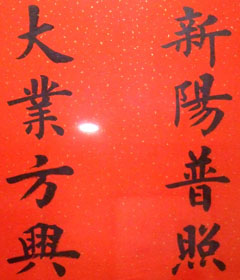 新陽普照
大業方興